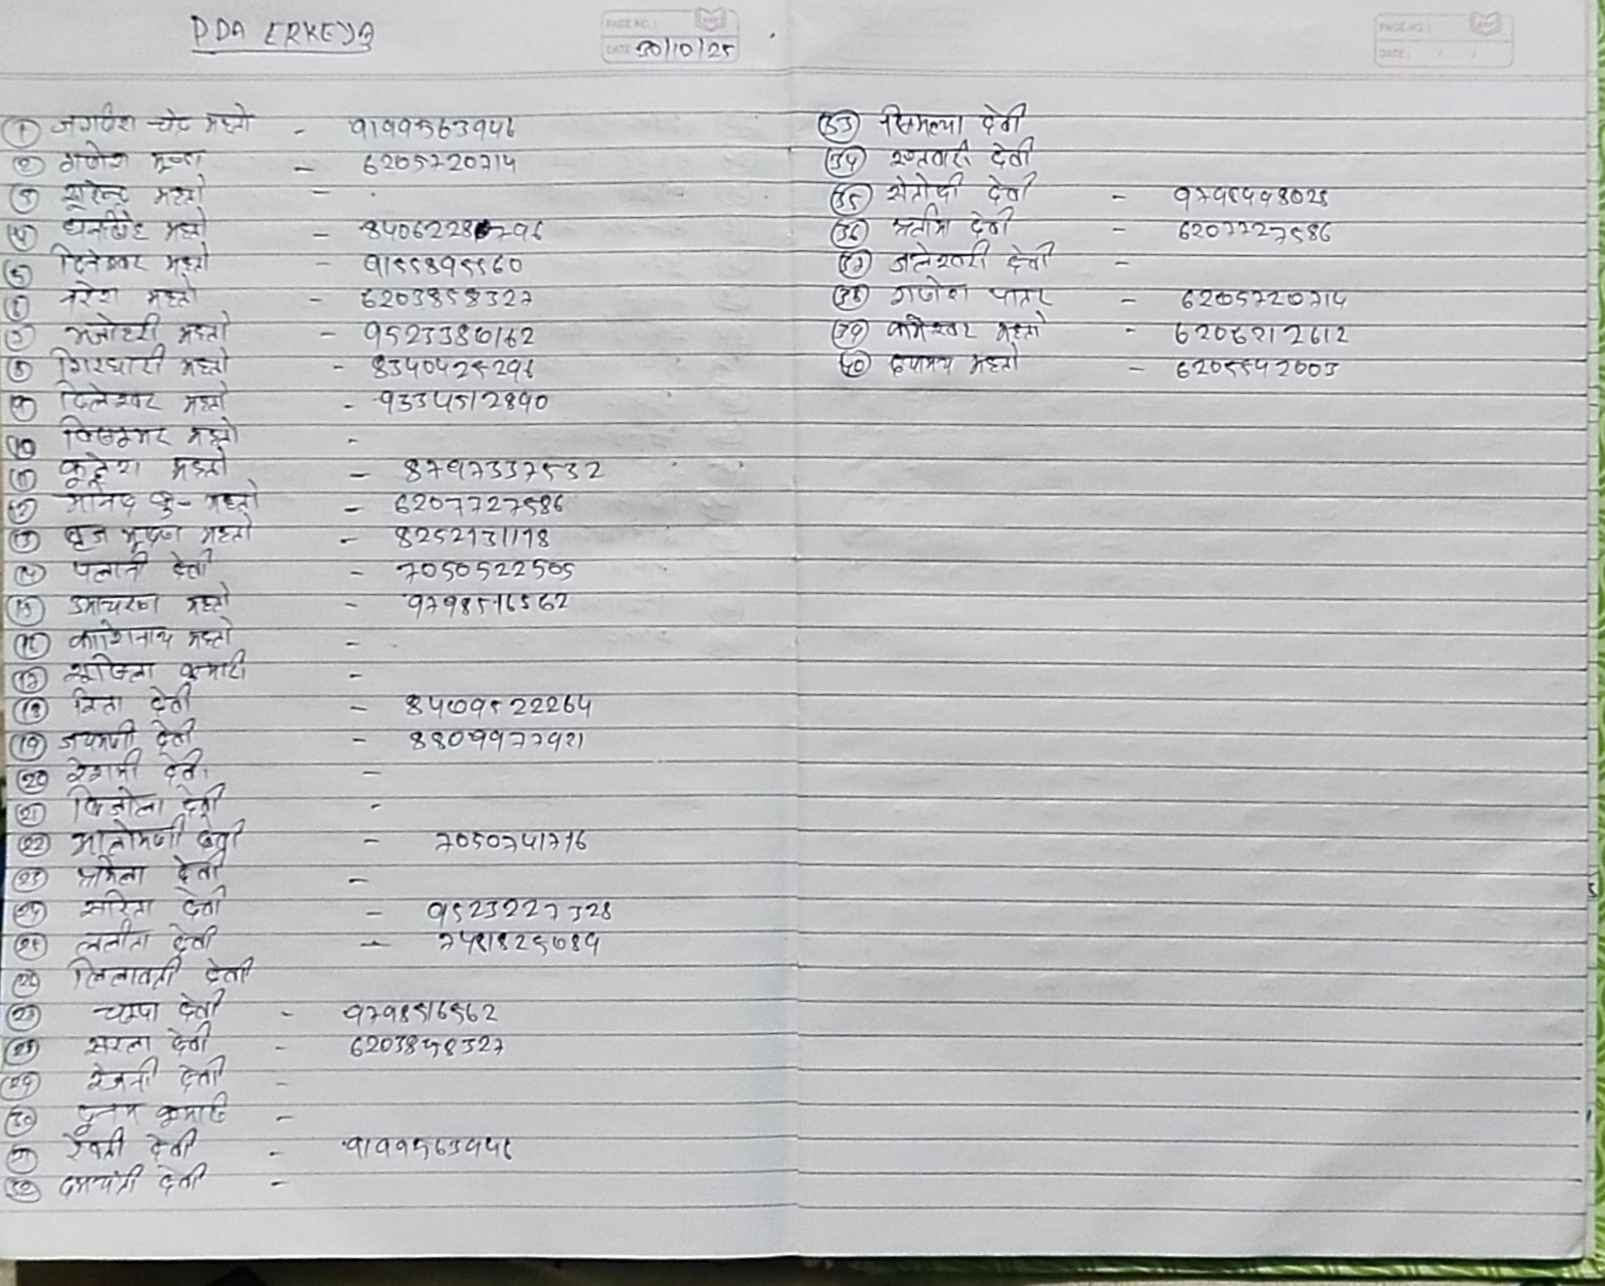 PDA ERKEYA
PAGE NO.:
DATE: 30/10/25
① जगदिश चंद्र महतो - 9199563946
② गणेश मुण्डा - 6205720714
③ सुरेन्द्र महतो -
④ महतो -
⑤ दिनेश्वर महतो - 9155895560
⑥ नरेश महतो - 6203858327
⑦ मनोहरी महतो - 9523380162
⑧ गिरधारी महतो - 8340425296
⑨ दिलेश्वर महतो - 9334512890
⑩ विशम्भर महतो -
⑪ महतो - 8797337532
⑫ कु- महतो - 6207727586
⑬ बृज भूषण महतो - 8252131118
⑭ देवी - 7050522505
⑮ उमाचरण महतो - 9798516562
⑯ काशिनाथ महतो -
⑰ कुमारी -
⑱ रिता देवी - 8409522264
⑲ जयमणी देवी - 8809977921
⑳ रेशमी देवी -
㉑ देवी -
㉒ देवी - 7050741776
㉓ देवी -
㉔ सरिता देवी - 9523227328
㉕ ललीता देवी -
㉖ लिलावती देवी
㉗ चम्पा देवी - 9798516562
㉘ सरला देवी - 6203858327
㉙ देवी -
㉚ कुमारी -
㉛ रेवती देवी - 9199563946
㉜ दमयंती देवी -
PAGE NO.:
DATE:
㉝ देवी
㉞ देवी
㉟ देवी -
㊱ देवी - 6207727586
㊲ जलेश्वरी देवी -
㊳ गणेश पातर - 6205720714
㊴ कामेश्वर महतो - 6206212612
㊵ महतो - 6205542003